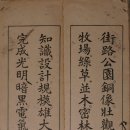 街路公園銅像壯觀
牧場綠草並木密林
知識設計規模雄大
完成光明暗黑電氣